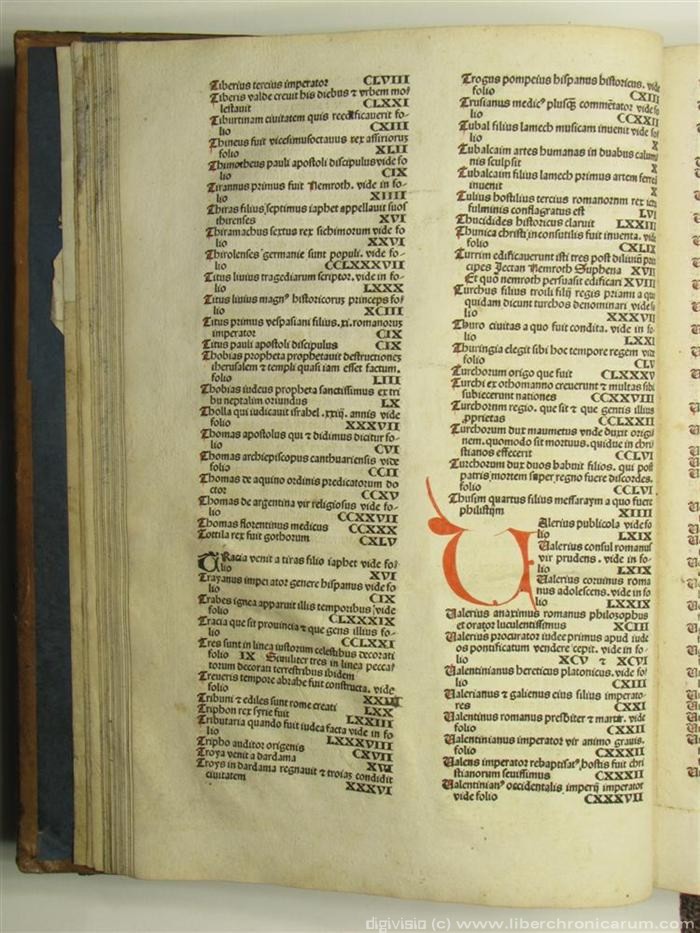 Tiberius tercius imperator CLVIII
Tiberis valde creuit his diebus ⁊ vrbem mo⸗
lestauit CLXXI
Tiburtinam ciuitatem quis reedificauerit fo⸗
lio CXIII
Thineus fuit vicesimusoctauus rex assirioruꝫ
folio XLII
Thimotheus pauli apostoli discipulus vide fo
lio CIX
Tirannus primus fuit Nemroth. vide in fo⸗
lio XIIII
Thiras filius septimus iaphet appellauit suos
thirenses XVI
Thiramachus sextus rex sichimorum vide fo
lio XXVI
Thirolenses germanie sunt populi. vide fo⸗
lio CCLXXXVII
Titus liuius tragediarum scriptor. vide in fo⸗
lio LXXX
Titus liuius magnꝰ historicoruꝫ princeps fo⸗
lio XCIII
Titus primus vespasiani filius .xi. romanoruꝫ
imperator CIX
Titus pauli apostoli discipulus CIX
Thobias propheta prophetauit destructioneꝫ
iherusalem ⁊ templi quasi iam esset factum.
folio LIII
Thobias iudeus propheta sanctissimus ex tri
bu neptalim oriundus LX
Tholla qui iudicauit israhel .xxiij. annis vide
folio XXXVII
Thomas apostolus qui ⁊ didimus dicitur fo⸗
lio CVI
Thomas archiepiscopus canthuariensis vide
folio CCII
Thomas de aquino ordinis predicatorum do
ctor CCXV
Thomas de argentina vir religiosus vide fo⸗
lio CCXXVII
Thomas florentinus medicus CCXXX
Tottila rex fuit gothorum CXLV
Tracia venit a tiras filio iaphet vide fo⸗
lio XVI
Trayanus imperator genere hispanus vide fo
lio CIX
Trabes ignea apparuit illis temporibus vide
folio CLXXXIX
Tracia que sit prouincia ⁊ que gens illius fo⸗
lio CCLXXI
Tres sunt in linea iustorum celestibus decorati
folio IX Similiter tres in linea pecca⸗
torum decorati terrestribus ibidem
Treueris tempore abrahe fuit constructa. vide
folio
Tribuni ⁊ ediles sunt rome creati
Triphon rex syrie fuit LXX
Tributaria quando fuit iudea facta vide in fo
lio LXXIII
Tripho auditor origenis LXXXVIII
Troya venit a dardama CXVII
Troys in dardama regnauit ⁊ troiaꝫ condidit
ciuitatem XXXVI
Trogus pompeius hispanus historicus. vide
folio CXIII
Trusianus medicꝰ plusqꝫ commētator vide fo
lio CCXXII
Tubal filius lamech musicam inuenit vide fo⸗
lio X
Tubalcaim artes humanas in duabus calum
nis sculpsit X
Tubalcaim filius lamech primus artem ferrei
inuenit X
Tulius hostilius tercius romanornm rex ictu
fulminis conflagratus est LVI
Thucidides historicus claruit LXXIII
Thunica christi inconsutilis fuit inuenta. vide
folio CXLIX
Turrim edificauerunt isti tres post diluuiū prin
cipes Jectan Nemroth Suphena XVII
Et quō nemroth persuasit edificari XVIII
Turchus filius troili filij regis priami a quo
quidam dicunt turchos denominari vide fo
lio XXXVII
Thuro ciuitas a quo fuit condita. vide in fo⸗
lio LXXI
Thuringia elegit sibi hoc tempore regem vide
folio CLV
Turchorum origo que fuit CLXXXV
Turchi ex othomanno creuerunt ⁊ multas sibi
subiecerunt nationes CCXXVIII
Turchornm regio. que sit ⁊ que gentis illius
ꝓprietas CCLXXII
Turchorum dux maumetus vnde duxit origi
nem. quomodo sit mortuus. quidue in chri
stianos effecerit CCLVI
Turchorum dux duos habuit filios. qui post
patris mortem super regno fuere discordes.
folio CCLVI
Thusim quartus filius messaraym a quo fuere
philistijm XIIII
VAlerius publicola vide fo
lio LXIX
Valerius consul romanus
vir prudens. vide in fo⸗
lio LXIX
Valerius coruinus roma
nus adolescens. vide in fo
lio LXXIX
Valerius anaximus romanus philosophus
et orator luculentissimus XCIII
Valerius procurator iudee primus apud iude
os pontificatum vendere cepit. vide in fo⸗
lio XCV ⁊ XCVI
Valentinianus hereticus platonicus. vide fo⸗
lio CXIII
Valerianus ⁊ galienus eius filius imperato⸗
res CXXI
Valentinus romanus presbiter ⁊ martir. vide
folio CXXII
Valentinianus imperator vir animo grauis.
folio CXXXII
Valens imperator rebaptisatꝰ hostis fuit chri
stianorum seuissimus CXXXII
Valentinianꝰ occidentalis imperij imperator
vide folio CXXXVII
digivisio (c) www.liberchronicarum.com